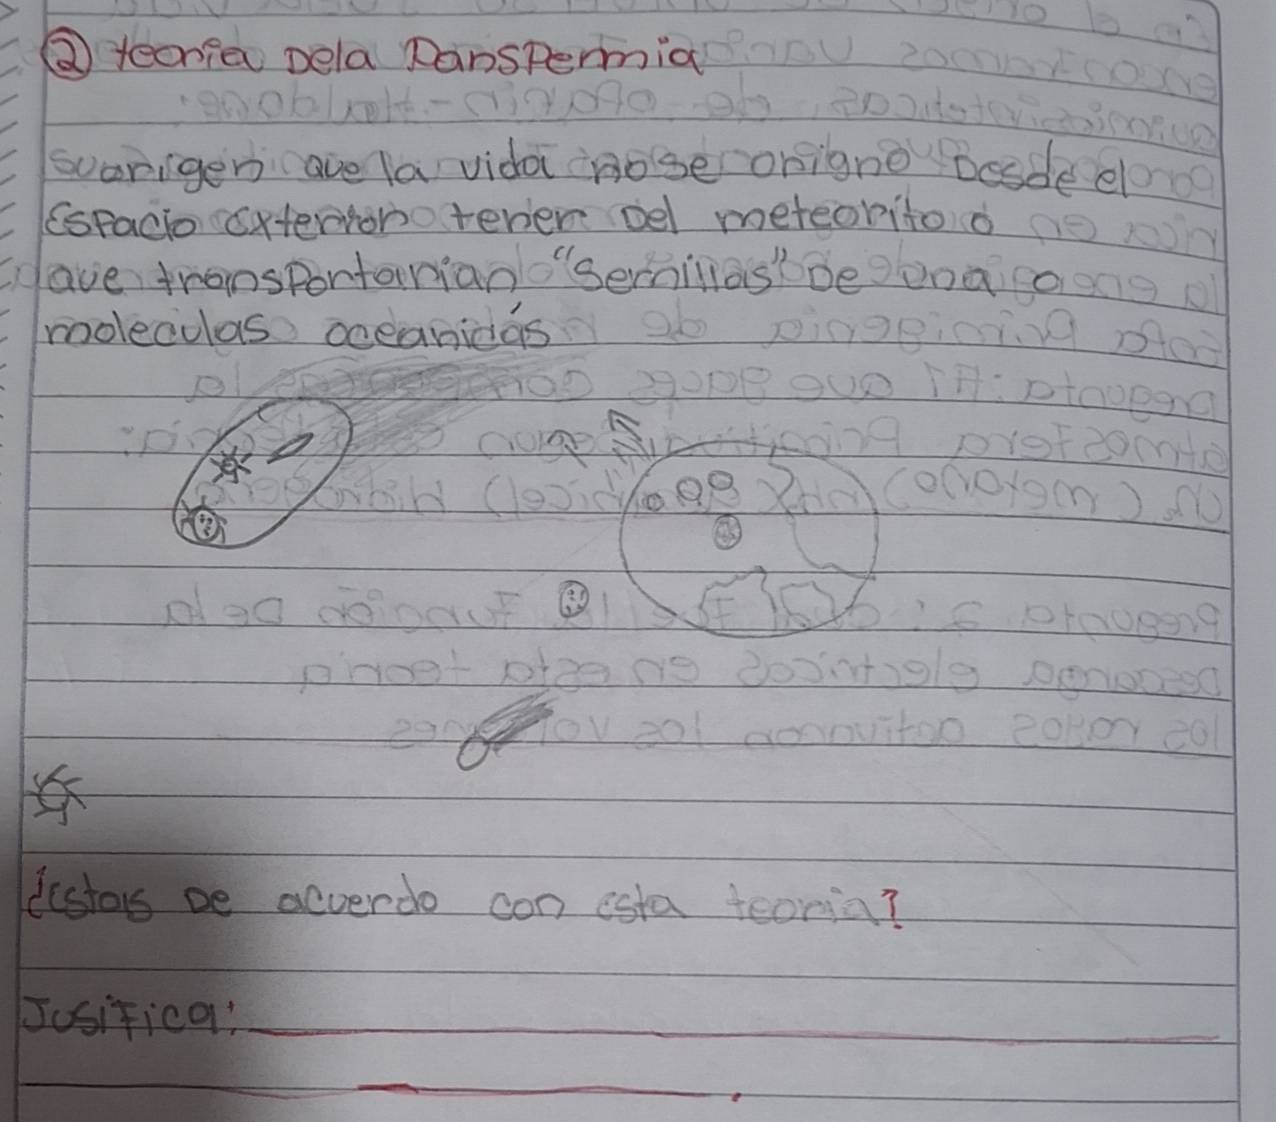 ② teoria Dela Panspermia
suorigen que la vida no se origno Desde el
Espacio exterior tener Del meteorito o
que transportarian "Semillas" De una o
moleculas oceanidás
¿Estas De acuerdo con esta teoria?
Jusifica: